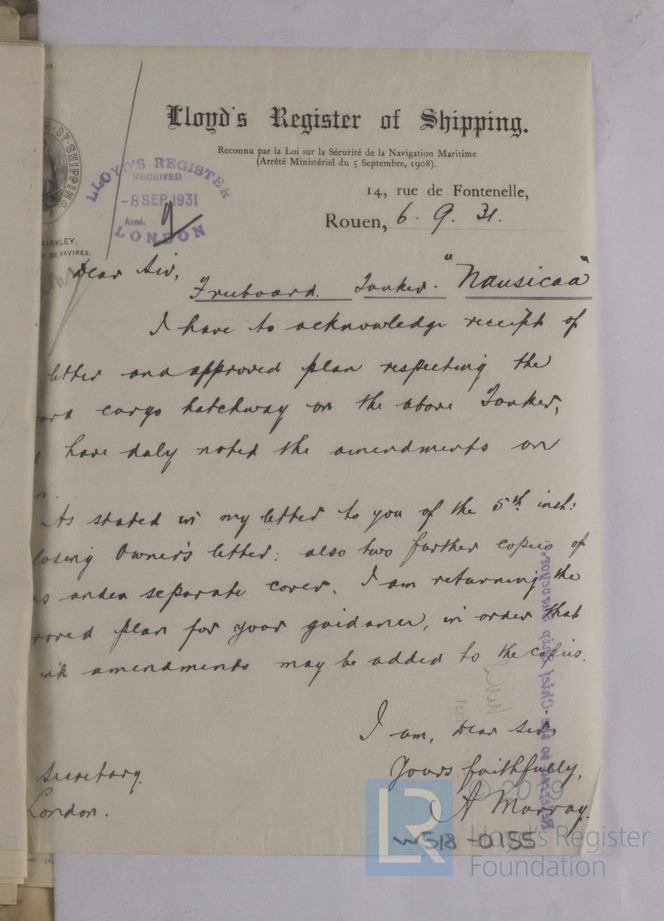 Lloyd's Register of Shipping.
Reconnu par la Loi sur la Sécurité de la Navigation Maritime
(Arrêté Ministériel du 5 Septembre, 1908).
14, rue de Fontenelle,
Rouen, 6. 9. 31.
LLOYD'S REGISTER
RECEIVED
-8 SEP 1931
LONDON
Dear Sir,
Freeboard. Tanker. "Nausicaa"
I have to acknowledge receipt of
letter and approved plan respecting the
cargo hatchway on the above Tanker,
have duly noted the amendments on
As stated in my letter to you of the 5th inst:
Owner's letter: also two further copies of
under separate cover. I am returning the
plan for your guidance, in order that
amendments may be added to the copies.
I am, dear Sir,
Yours faithfully,
A Murray.
Secretary.
London.
W518-0155
© 2019
Lloyd's Register
Foundation
LR